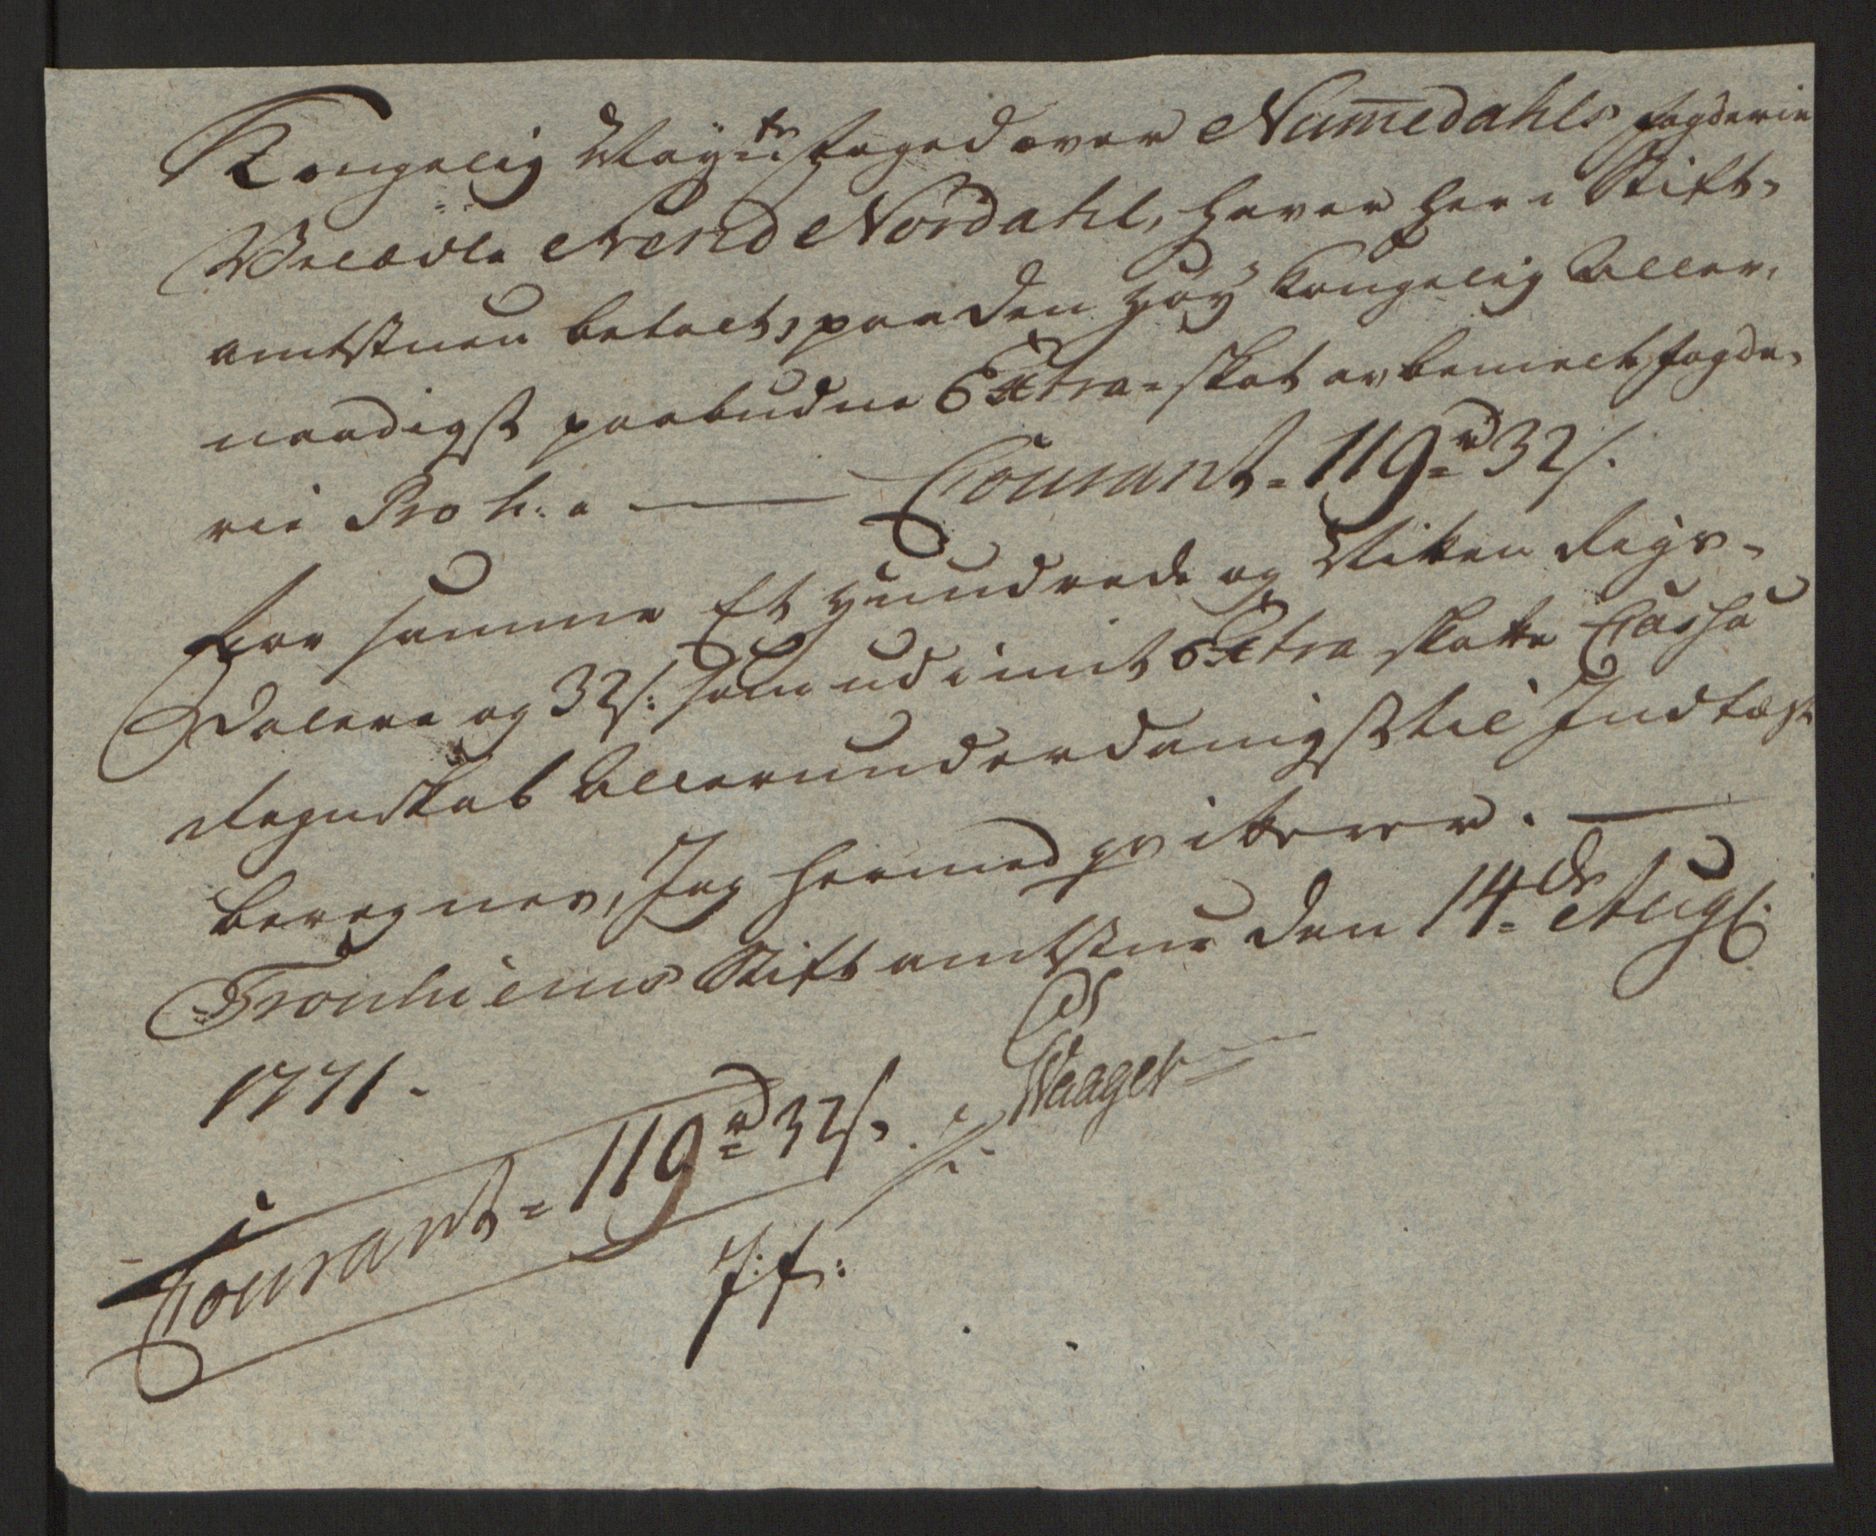 Kongelig Maÿ:ts foged over Nummedahls fogderie
Velædle Svend Nordahl, haver her i Stift-
amtstuen betalt, paa den høÿ Kongelig Aller-
naadigst paabudne Extra-skat av bemelte fogde-
rie Pro h: a — Courant = 119 rd 32 s.
for samme Et Hundrede og Nitten Rigs-
dalere og 32 s: som ud i mit Extra skatte Cassa
Regnskab Allerunderdanigst til Indtægt
beregnes, Jeg hermed qvitterer. —
Tronhiems Stiftamtstue den 14de Aug:
1771.
Waager
Courant = 119 rd 32 s.